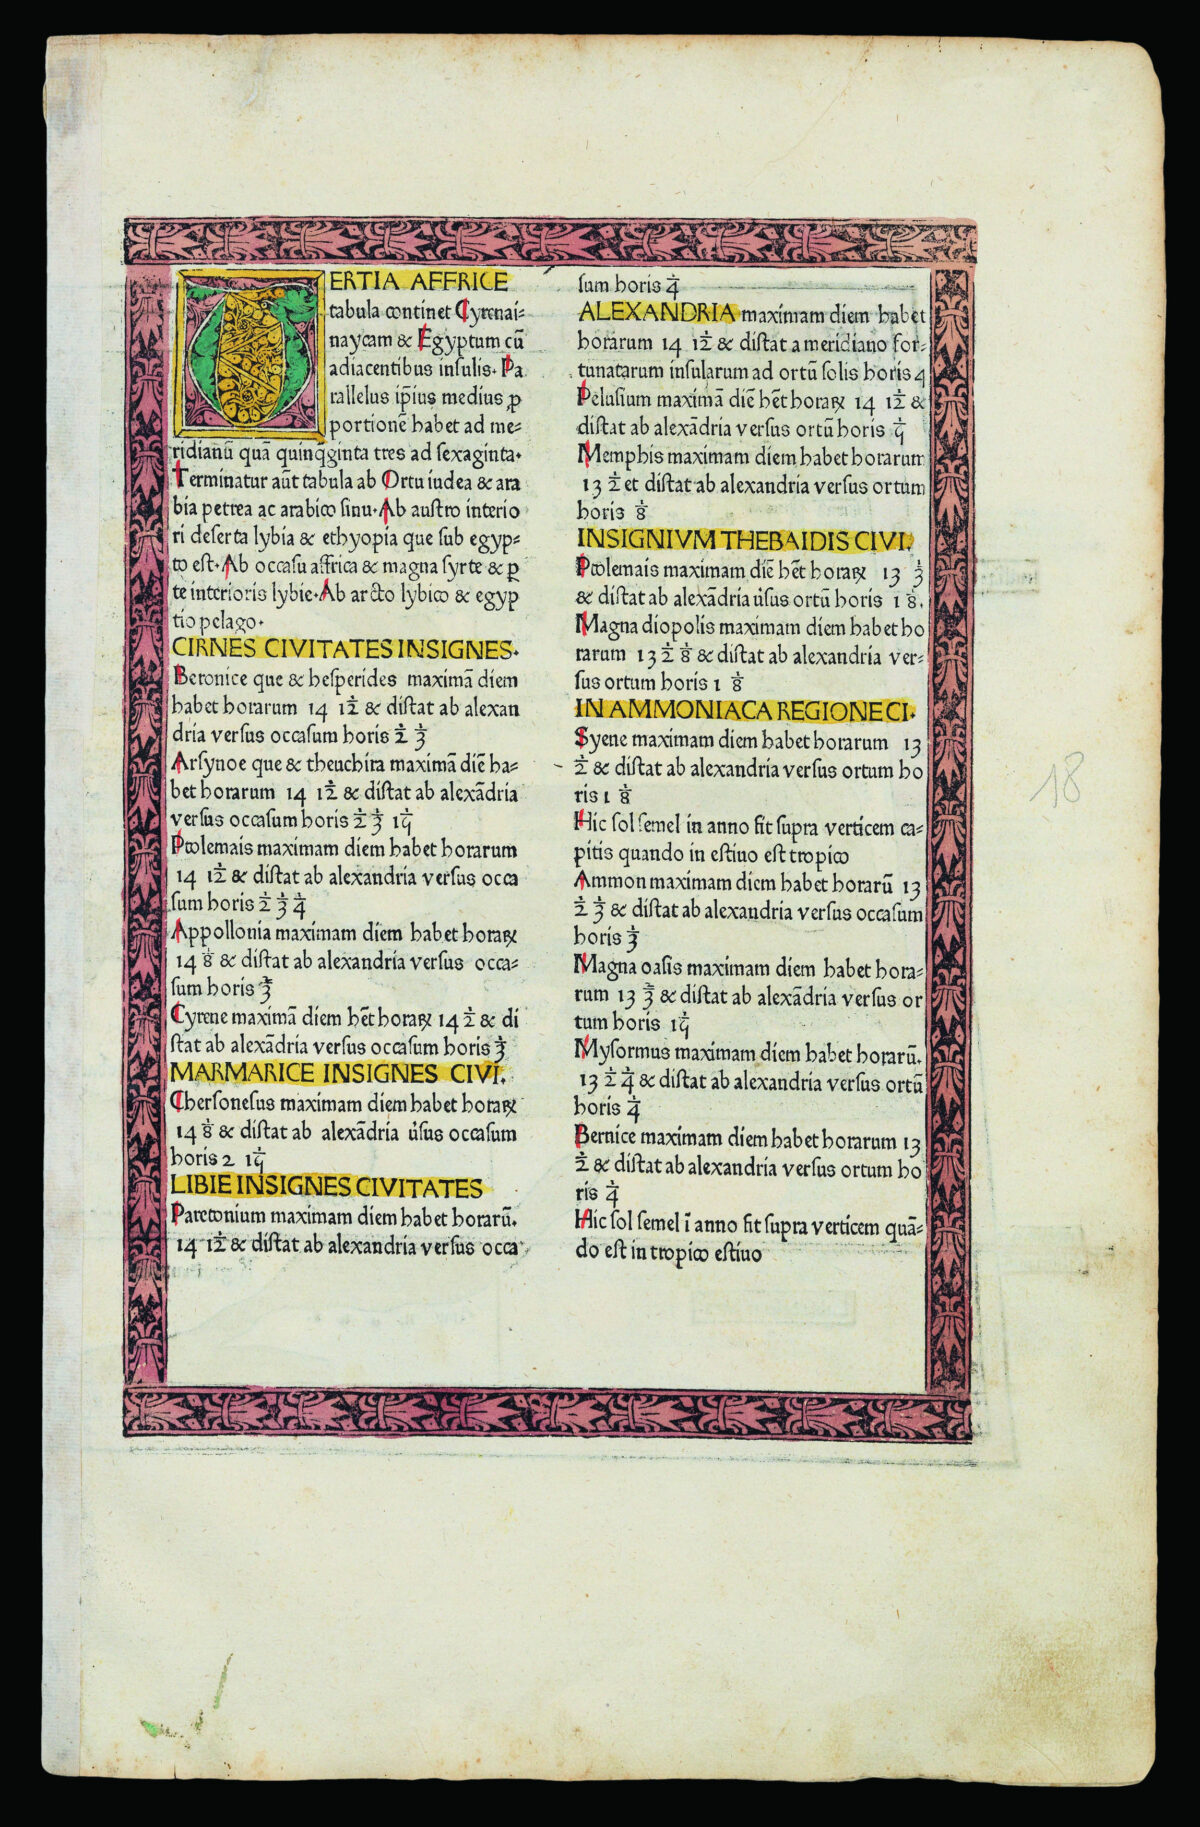 TERTIA AFFRICE
tabula continet Cyrenai=
naycam & Egyptum cū
adiacentibus insulis. Pa
rallelus ip̄ius medius ꝓ
portionē habet ad me=
ridianū quā quinqginta tres ad sexaginta.
Terminatur aūt tabula ab Ortu iudea & ara
bia petrea ac arabico sinu. Ab austro interio
ri deserta lybia & ethyopia que sub egyp=
to est. Ab occasu affrica & magna syrte & ꝑ
te interioris lybie. Ab arcto lybico & egyp
tio pelago.
CIRNES CIVITATES INSIGNES.
Beronice que & hesperides maximā diem
habet horarum 14 1½ & distat ab alexan
dria versus occasum horis ½ ⅓
Arsynoe que & theuchira maximā diē ha=
bet horarum 14 1½ & distat ab alexādria
versus occasum horis ½ ⅓ 1
Ptolemais maximam diem habet horarum
14 1½ & distat ab alexandria versus occa
sum horis ½ ⅓ ¼
Appollonia maximam diem habet horaꝝ
14 ⅛ & distat ab alexandria versus occa=
sum horis ⅔
Cyrene maximā diem hēt horaꝝ 14 ½ & di
stat ab alexādria versus occasum horis ⅔
MARMARICE INSIGNES CIVI.
Chersonesus maximam diem habet horaꝝ
14 ⅛ & distat ab alexādria ūsus occasum
horis 2 1
LIBIE INSIGNES CIVITATES
Paretonium maximam diem habet horarū.
14 1½ & distat ab alexandria versus occa
sum horis ¼
ALEXANDRIA maximam diem habet
horarum 14 1½ & distat a meridiano for=
tunatarum insularum ad ortū solis horis 4
Pelusium maximā diē hēt horaꝝ 14 1½ &
distat ab alexādria versus ortū horis
Memphis maximam diem habet horarum
13 ½ et distat ab alexandria versus ortum
horis ⅛
INSIGNIVM THEBAIDIS CIVI.
Ptolemais maximam diē hēt horaꝝ 13 ⅔
& distat ab alexādria ūsus ortū horis 1 ⅛.
Magna diopolis maximam diem habet ho
rarum 13 ½ ⅛ & distat ab alexandria ver=
sus ortum horis 1 ⅛
IN AMMONIACA REGIONE CI.
Syene maximam diem habet horarum 13
½ & distat ab alexandria versus ortum ho
ris 1 ⅛
Hic sol semel in anno fit supra verticem ca=
pitis quando in estiuo est tropico
Ammon maximam diem habet horarū 13
½ ⅓ & distat ab alexandria versus occasum
horis ⅓
Magna oasis maximam diem habet hora=
rum 13 ⅔ & distat ab alexādria versus or
tum horis 1
Mysormus maximam diem habet horarū.
13 ½ ¼ & distat ab alexandria versus ortū
horis ¼
Bernice maximam diem habet horarum 13
½ & distat ab alexandria versus ortum ho
ris ¼
Hic sol semel ī anno fit supra verticem quā=
do est in tropico estiuo
18